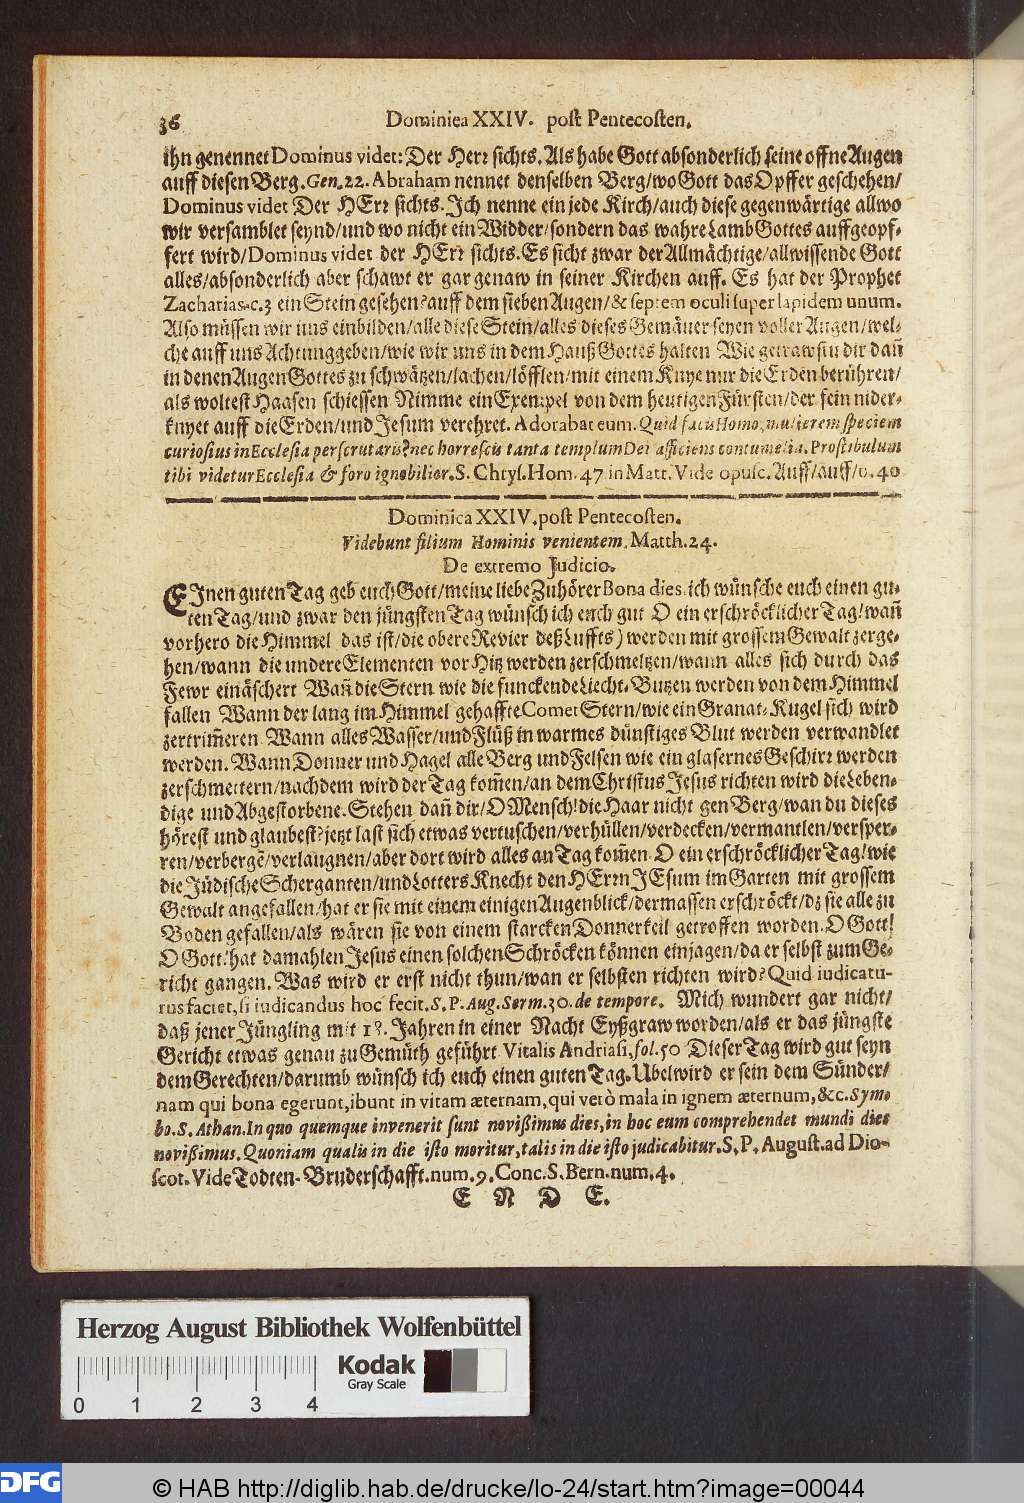 36 Dominica XXIV. post Pentecosten.
ihn genennet Dominus videt: Der Herr sichts. Als habe Gott absonderlich seine offne Augen
auff diesen Berg. Gen. 22. Abraham nennet denselben Berg/ wo Gott das Opffer geschehen/
Dominus videt Der HErr sichts. Ich nenne ein jede Kirch/ auch diese gegenwärtige allwo
wir versamblet seynd/ und wo nicht ein Widder/ sondern das wahre Lamb Gottes auffgeopf-
fert wird/ Dominus videt der HErr sichts. Es sicht zwar der Allmächtige/ allwissende Gott
alles/ absonderlich aber schawt er gar genaw in seiner Kirchen auff. Es hat der Prophet
Zacharias. c. 3 ein Stein gesehen? auff dem sieben Augen/ & septem oculi super lapidem unum.
Also müssen wir uns einbilden/ alle diese Stein/ alles dieses Gemäuer seyen voller Augen/ wel-
che auff uns Achtung geben/ wie wir uns in dem Hauß Gottes halten Wie getrawstu dir dañ
in denen Augen Gottes zu schwätzen/ lachen/ löfflen/ mit einem Knye nur die Erden berühren/
als woltest Haasen schiessen Nimme ein Exempel von dem heutigen Fürsten/ der sein nider-
knyet auff die Erden/ und Jesum verehret. Adorabat eum. Quid facis Homo, mulierem speciem
curiosius in Ecclesia perscrutaris? nec horrescis tanta templum Dei afficiens contumelia. Prostibulum
tibi videtur Ecclesia & foro ignobilior. S. Chrys. Hom. 47 in Matt. Vide opusc. Auff/ auff/ 40
Dominica XXIV. post Pentecosten.
Videbunt filium Hominis venientem. Matth. 24.
De extremo Judicio.
EJnen guten Tag geb euch Gott/ meine liebe Zuhörer Bona dies. ich wünsche euch einen gu-
ten Tag/ und zwar den jüngsten Tag wünsch ich euch gut O ein erschröcklicher Tag! wañ
vorhero die Himmel das ist/ die obere Revier deß Luffts) werden mit grossem Gewalt zerge-
hen/ wann die undere Elementen vor Hitz werden zerschmeltzen/ wann alles sich durch das
Fewr einäschert Wañ die Stern wie die funckende Liecht-Butzen werden von dem Himmel
fallen Wann der lang im Himmel gehaffte Comet Stern/ wie ein Granat-Kugel sich wird
zertrim̃eren. Wann alles Wasser/ und Flüß in warmes dünstiges Blut werden verwandlet
werden. Wann Donner und Hagel alle Berg und Felsen wie ein glasernes Geschirr werden
zerschmettern/ nachdem wird der Tag kom̃en/ an dem Christus Jesus richten wird die Leben-
dige und Abgestorbene. Stehen dañ dir/ O Mensch! die Haar nicht gen Berg/ wan du dieses
hörest und glaubest? jetzt last sich etwas vertuschen/ verhüllen/ verdecken/ vermantlen/ versper-
ren/ verbergẽ/ verlaugnen/ aber dort wird alles an Tag kom̃en. O ein erschröcklicher Tag! wie
die Jüdische Scherganten/ und Lotters Knecht den HErrn JEsum im Garten mit grossem
Gewalt angefallen/ hat er sie mit einem einigen Augenblick/ dermassen erschröckt/ dz sie alle zu
Boden gefallen/ als wären sie von einem starcken Donnerkeil getroffen worden. O Gott!
O Gott! hat damahlen Jesus einen solchen Schröcken können einjagen/ da er selbst zum Ge-
richt gangen. Was wird er erst nicht thun/ wan er selbsten richten wird? Quid iudicatu-
rus faciet, si iudicandus hoc fecit. S. P. Aug. Serm. 30. de tempore. Mich wundert gar nicht/
daß jener Jüngling mit 18. Jahren in einer Nacht Eyßgraw worden/ als er das jüngste
Gericht etwas genau zu Gemüth geführt Vitalis Andriasi, fol. 50 Dieser Tag wird gut seyn
dem Gerechten/ darumb wünsch ich euch einen guten Tag. Ubel wird er sein dem Sünder/
nam qui bona egerunt, ibunt in vitam æternam, qui verò mala in ignem æternum, &c. Sym-
bo. S. Athan. In quo quemque invenerit suus novißimus dies, in hoc eum comprehendet mundi dies
novißimus. Quoniam qualis in die isto moritur, talis in die isto judicabitur. S. P. August. ad Dio-
scot. Vide Todten-Bruderschafft. num. 9. Conc. S. Bern. num. 4.
E N D E.
Herzog August Bibliothek Wolfenbüttel
Kodak
Gray Scale
0 1 2 3 4
DFG © HAB http://diglib.hab.de/drucke/lo-24/start.htm?image=00044